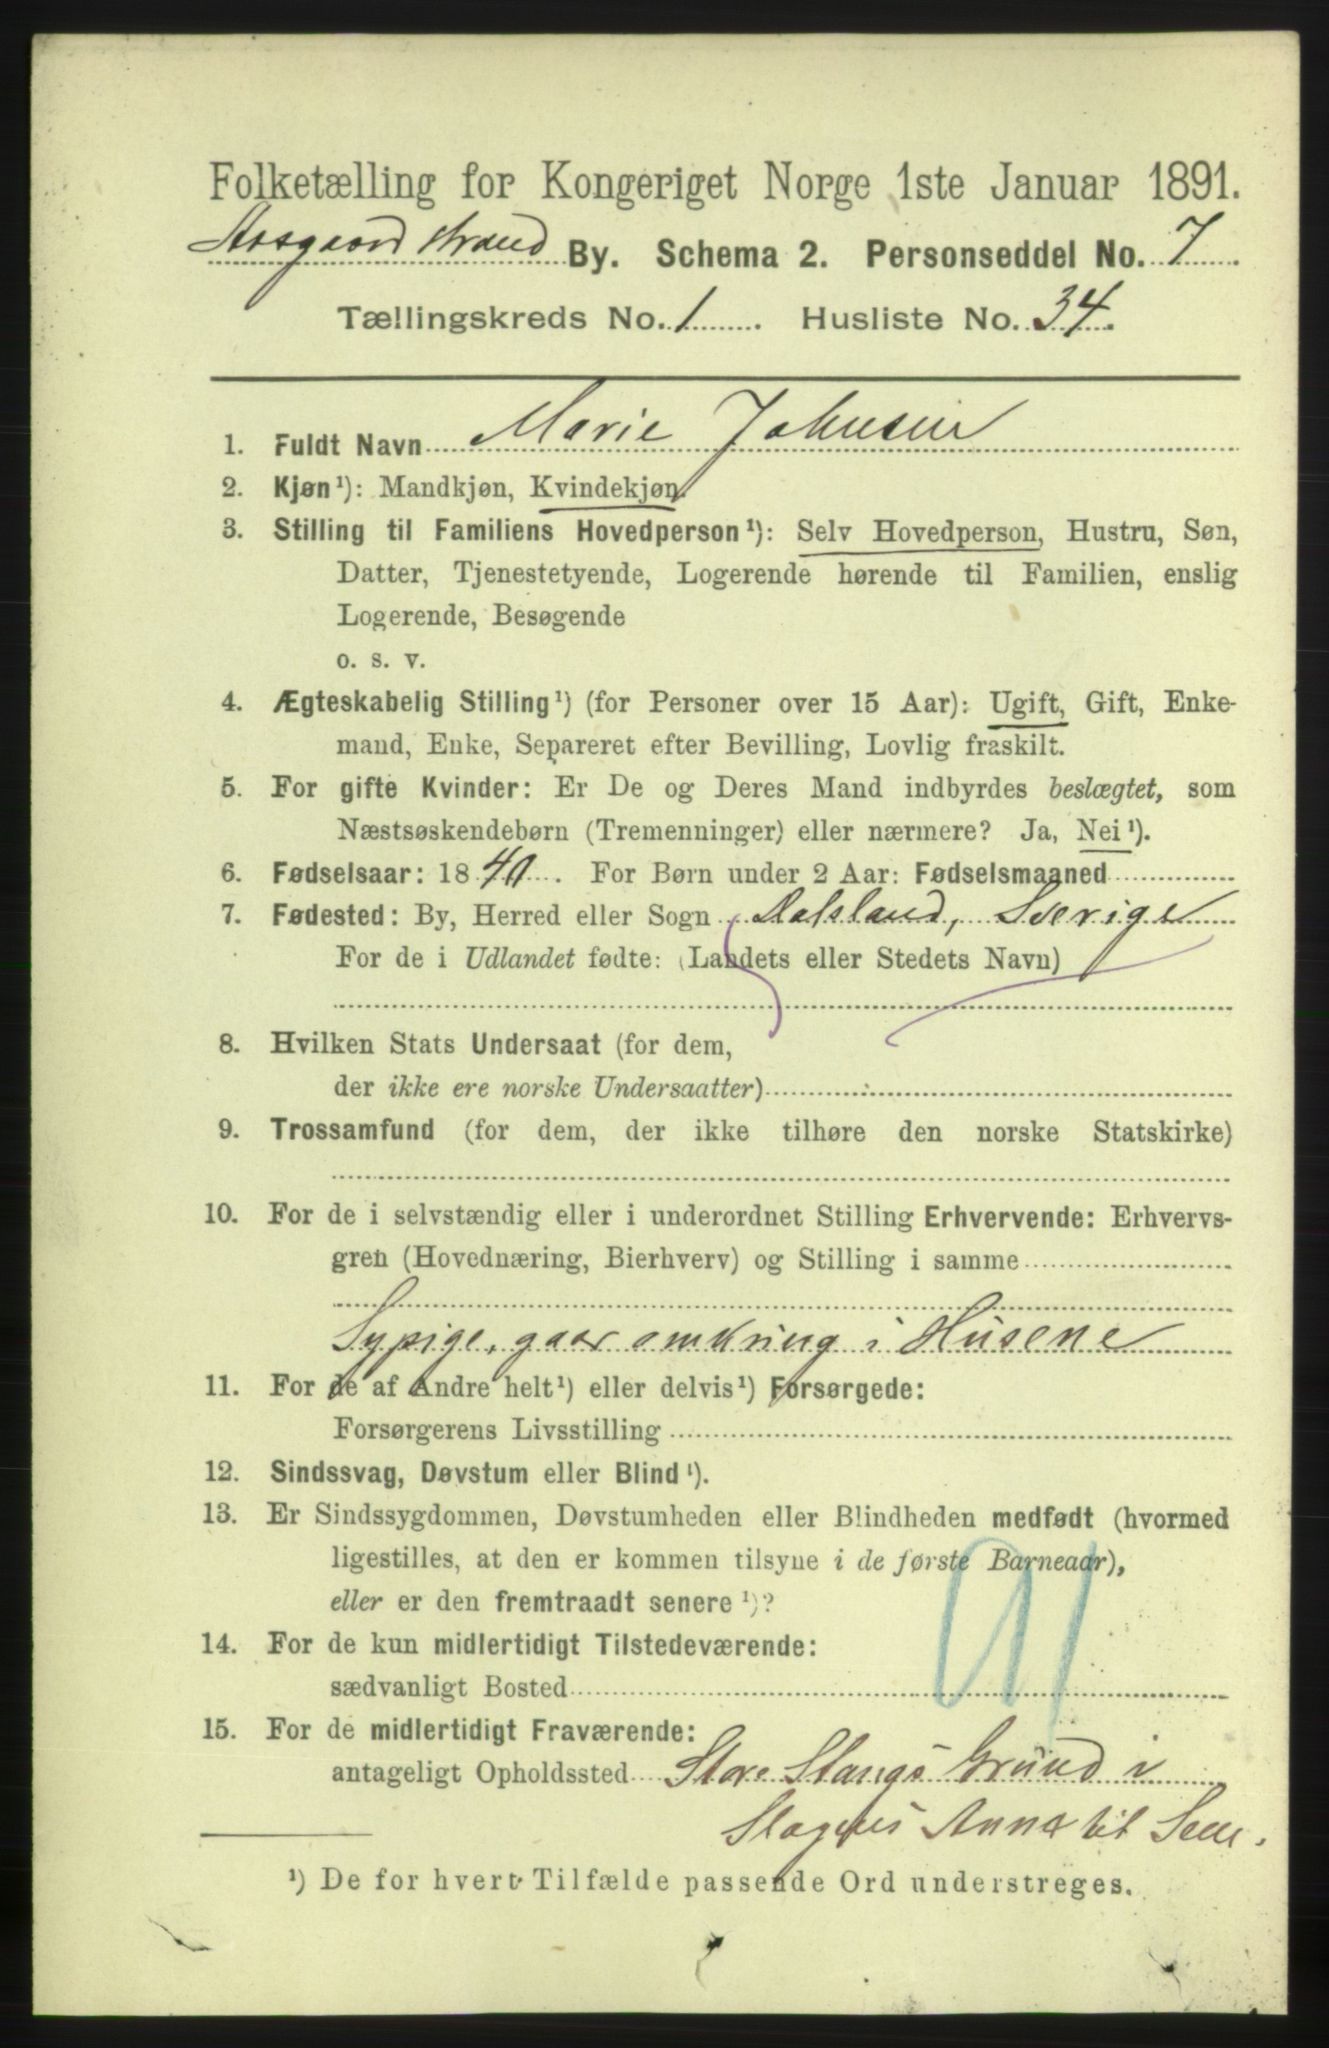 Folketælling for Kongeriget Norge 1ste Januar 1891.
Aasgaardstrand By. Schema 2. Personseddel No. 7
Tællingskreds No. 1. Husliste No. 34.
1. Fuldt Navn Marie Johnsen
2. Kjøn¹): Mandkjøn, Kvindekjøn.
3. Stilling til Familiens Hovedperson¹): Selv Hovedperson, Hustru, Søn,
Datter, Tjenestetyende, Logerende hørende til Familien, enslig
Logerende, Besøgende
o. s. v.
4. Ægteskabelig Stilling¹) (for Personer over 15 Aar): Ugift, Gift, Enke-
mand, Enke, Separeret efter Bevilling, Lovlig fraskilt.
5. For gifte Kvinder: Er De og Deres Mand indbyrdes beslægtet, som
Næstsøskendebørn (Tremenninger) eller nærmere? Ja, Nei¹).
6. Fødselsaar: 1840. For Børn under 2 Aar: Fødselsmaaned
7. Fødested: By, Herred eller Sogn Dalsland, Sverige
For de i Udlandet fødte: (Landets eller Stedets Navn)
8. Hvilken Stats Undersaat (for dem,
der ikke ere norske Undersaatter)
9. Trossamfund (for dem, der ikke tilhøre den norske Statskirke)
10. For de i selvstændig eller i underordnet Stilling Erhvervende: Erhvervs-
gren (Hovednæring, Bierhverv) og Stilling i samme
Sypige, gaar omkring i Husene
11. For de af Andre helt¹) eller delvis¹) Forsørgede:
Forsørgerens Livsstilling
12. Sindssvag, Døvstum eller Blind¹).
13. Er Sindssygdommen, Døvstumheden eller Blindheden medfødt (hvormed
ligestilles, at den er kommen tilsyne i de første Barneaar),
eller er den fremtraadt senere¹)?
14. For de kun midlertidigt Tilstedeværende:
sædvanligt Bosted
15. For de midlertidigt Fraværende:
antageligt Opholdssted Store Stangs Grund i
Slagens Annex til Sem.
¹) De for hvert Tilfælde passende Ord understreges.